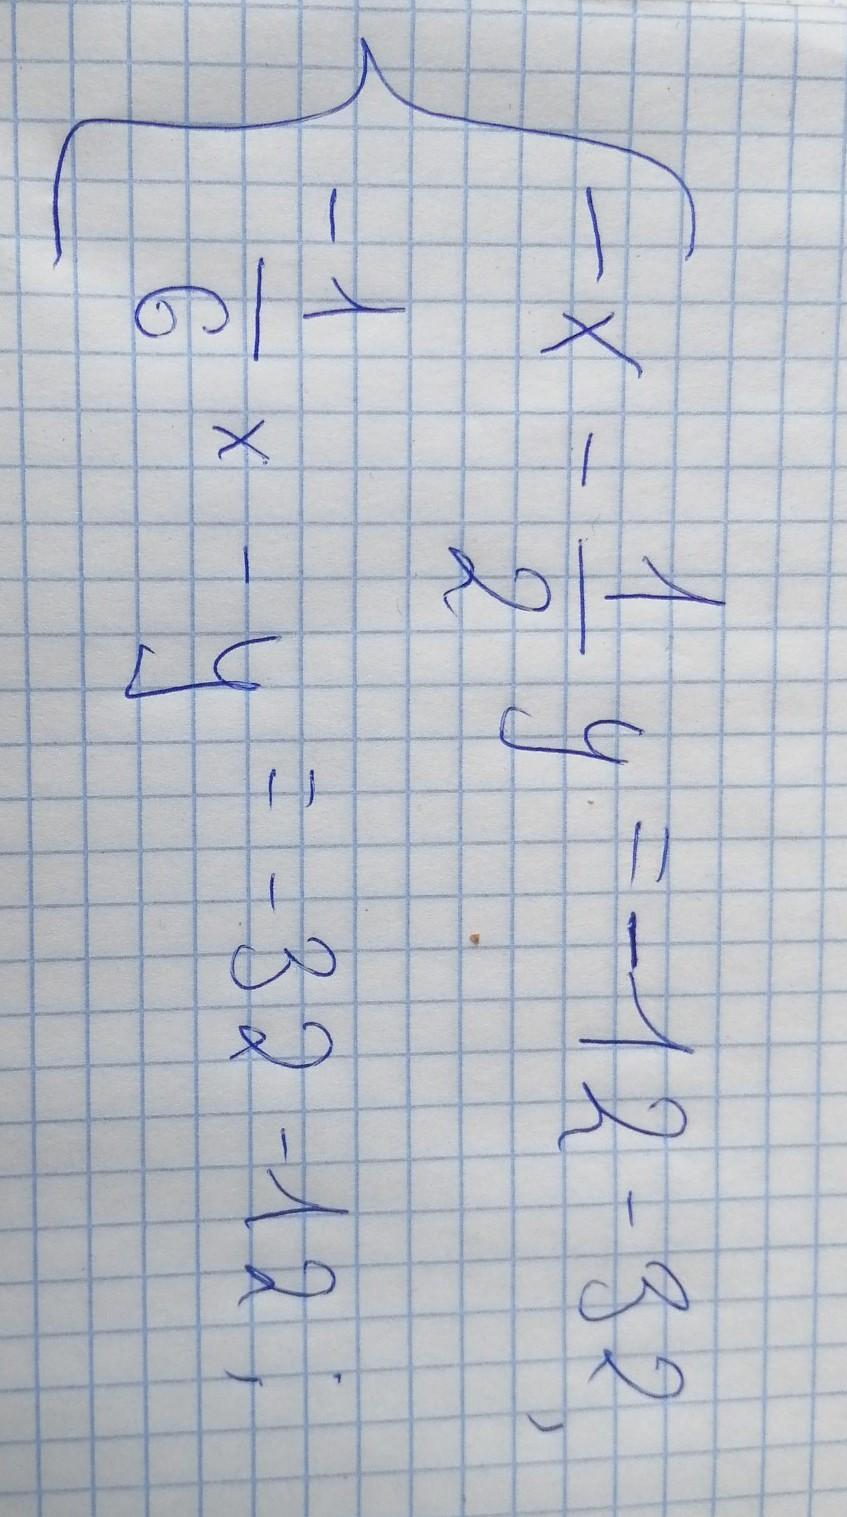 { -x - 1/2 y = -12 - 32,
-1/6 x - y = -32 - 12;